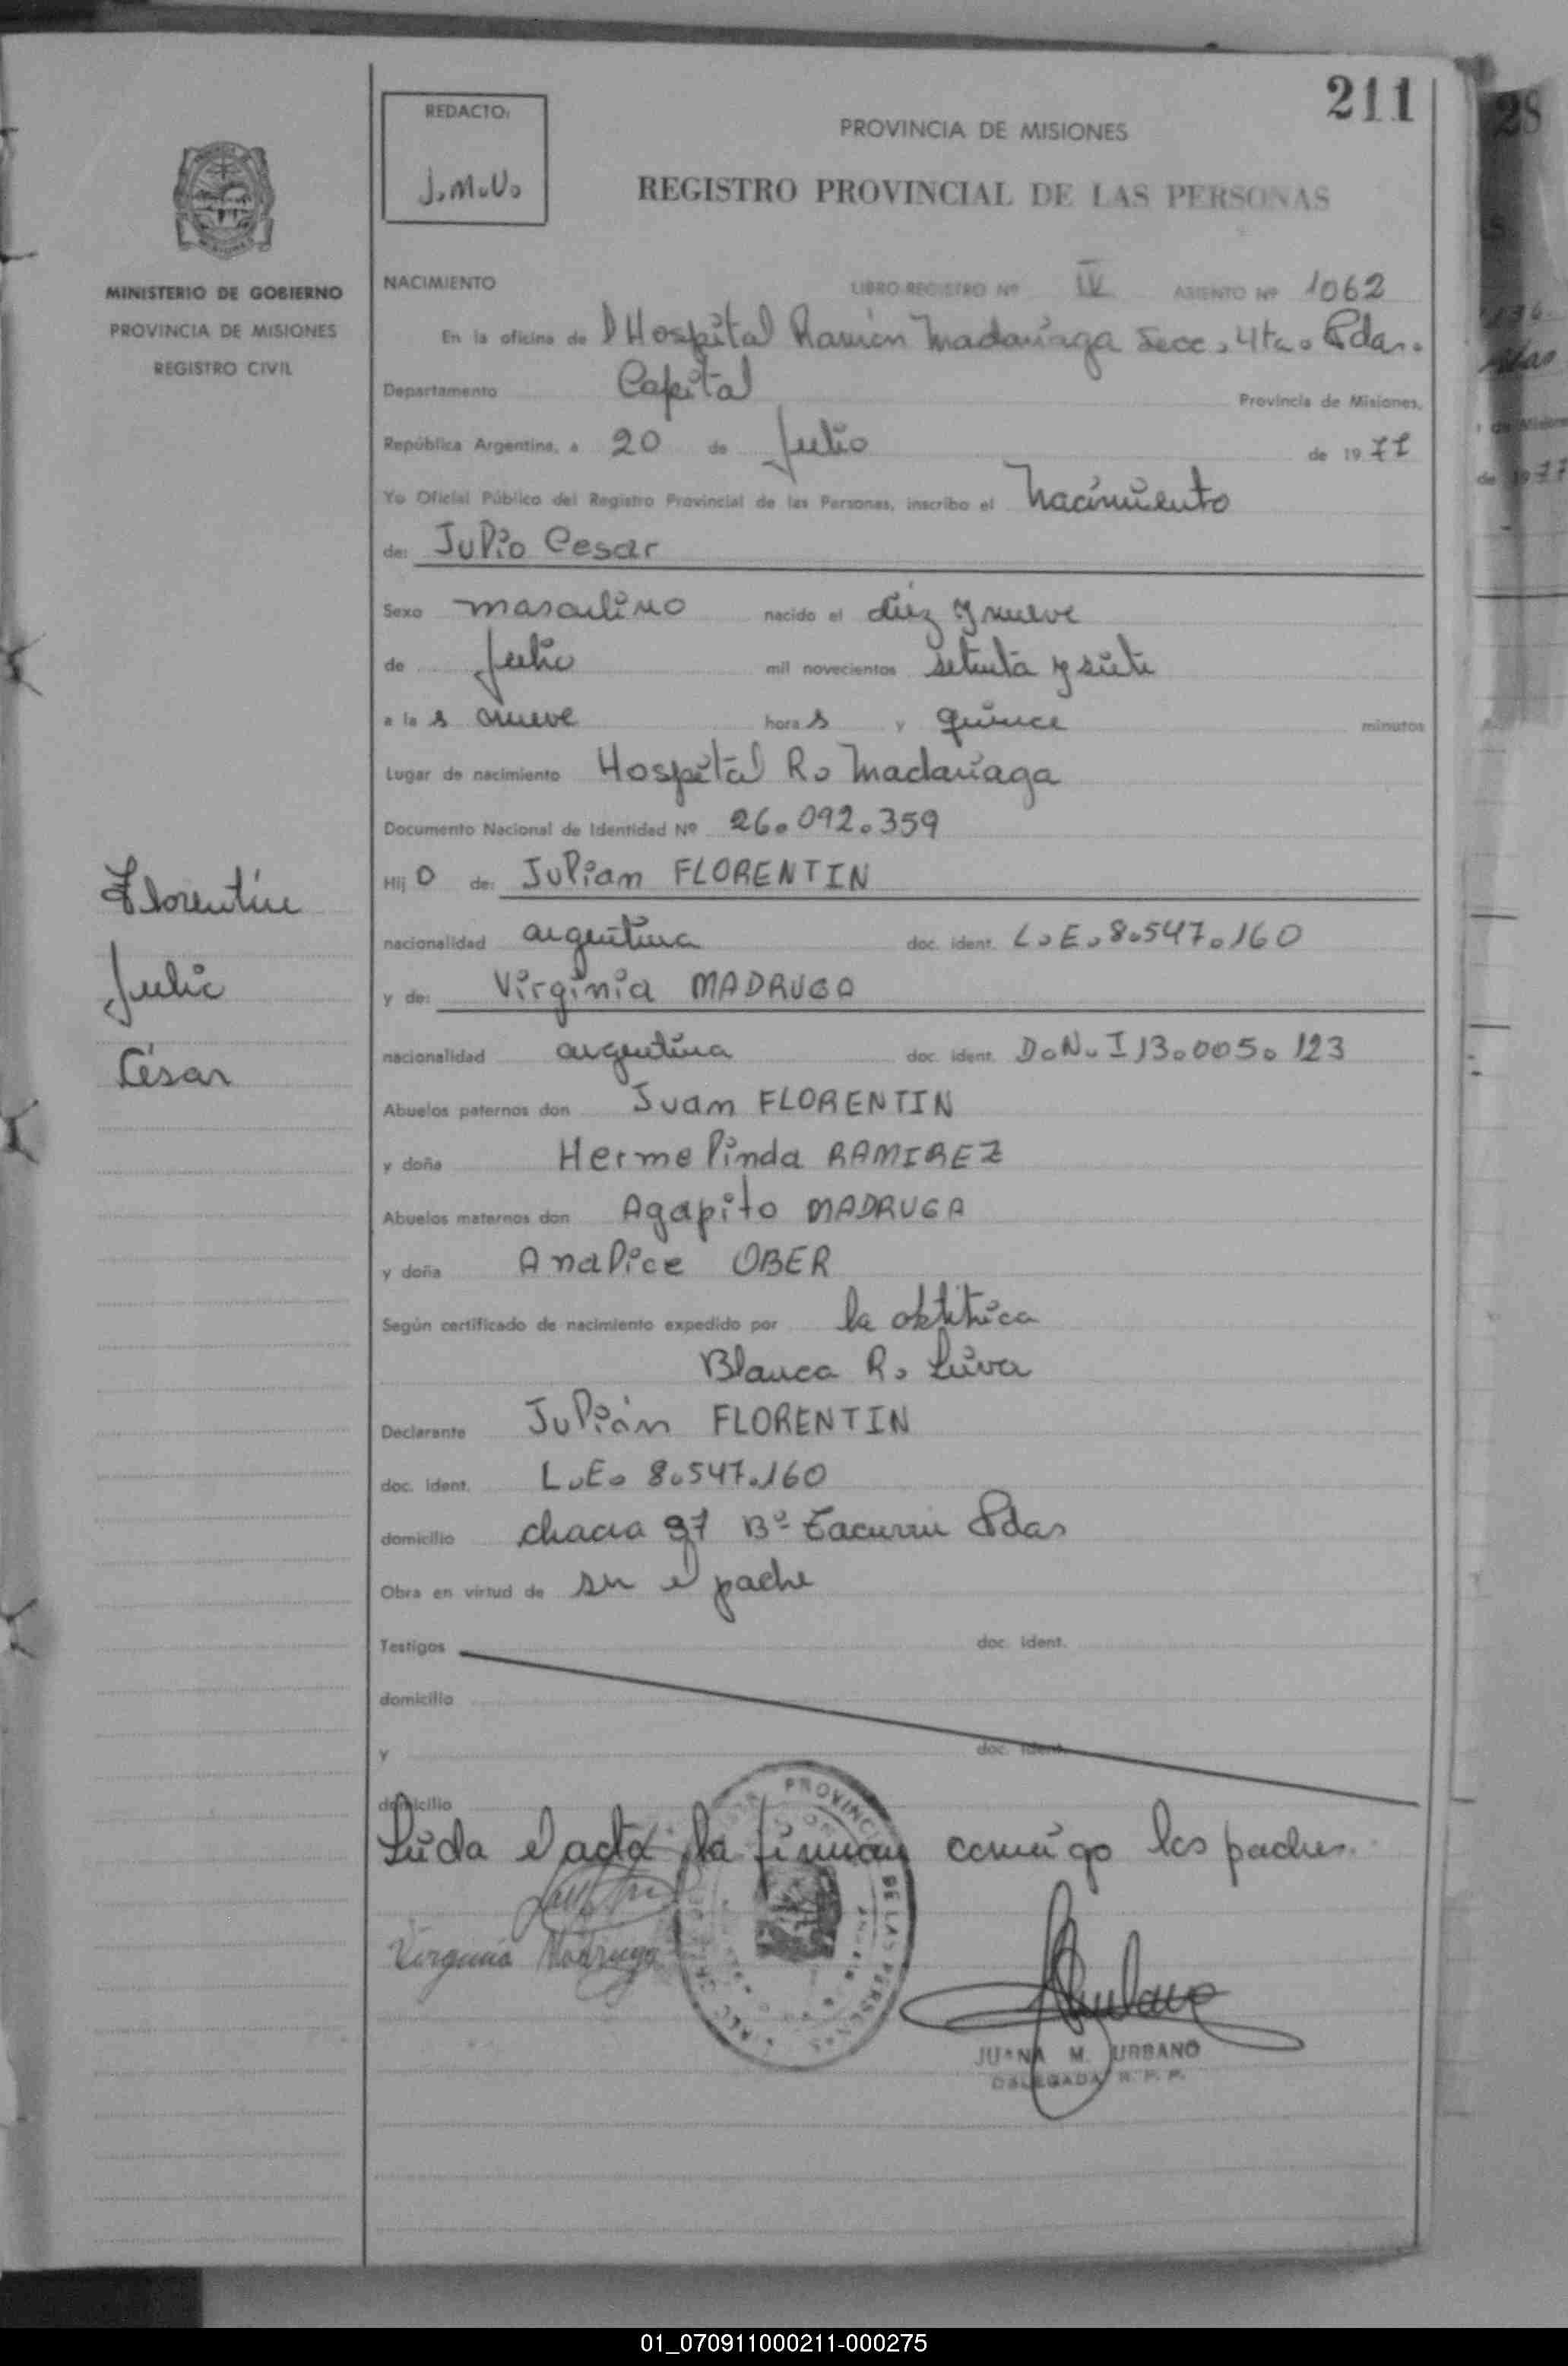 211
REDACTO:
J.M.U.
PROVINCIA DE MISIONES
REGISTRO PROVINCIAL DE LAS PERSONAS
MINISTERIO DE GOBIERNO
PROVINCIA DE MISIONES
REGISTRO CIVIL
NACIMIENTO LIBRO-REGISTRO Nº IV ASIENTO Nº 1062
En la oficina de l Hospital Ramón Madariaga Secc. 4ta. Pdas.
Departamento Capital Provincia de Misiones,
República Argentina, a 20 de Julio de 1977
Yo Oficial Público del Registro Provincial de las Personas, inscribo el Nacimiento
de: Julio Cesar
Sexo masculino nacido el diez y nueve
de Julio mil novecientos setenta y siete
a la s nueve hora s y quince minutos
Lugar de nacimiento Hospital R. Madariaga
Documento Nacional de Identidad Nº 26.092.359
Hij o de: Julian FLORENTIN
nacionalidad argentina doc. ident. L.E. 8.547.160
y de: Virginia MADRUGA
nacionalidad argentina doc. ident. D.N.I 13.005.123
Abuelos paternos don Juan FLORENTIN
y doña Hermelinda RAMIREZ
Abuelos maternos don Agapito MADRUGA
y doña Analice OBER
Según certificado de nacimiento expedido por la obstétrica
Blanca R. Leiva
Declarante Julián FLORENTIN
doc. ident. L.E. 8.547.160
domicilio chacra 97 Bº Tacurru Pdas
Obra en virtud de ser el padre
Testigos doc. ident.
domicilio
y doc. ident.
domicilio
Leida el acta la firman conmigo los padres.
Virginia Madruga
PROVINCIAL DE LAS PERSONAS
JUANA M. URBANO
DELEGADA R. P. P.
Florentín
Julio
César
01_070911000211-000275